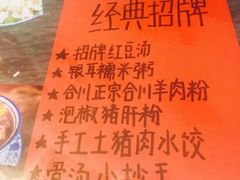 经典招牌
★招牌红豆汤
★银耳糯米粥
★合川正宗合川羊肉粉
★泡椒猪肝粉
★手工土猪肉水饺
★骨汤小抄手